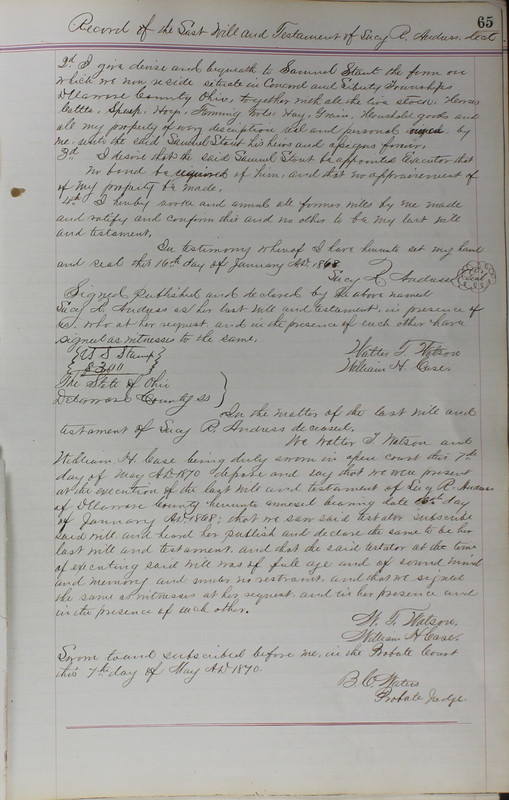 65
Record of the Last Will and Testament of Lucy R. Andress. decd
2d I give devise and bequeath to Samuel Stout the farm on
which we now reside situate in Concord and Liberty Townships
Delaware County Ohio, together with all the live stock. Horses
Cattle, Sheep, Hogs, Farming Tools. Hay, Grain, Household goods and
all my property of every discription real and personal owned by
me, unto the said Samuel Stout his heirs and assigns forever.
3d I desire that the said Samuel Stout be appointed Executor that
no bond be required of him, and that no appraisement of
of my property be made.
4th I hereby revoke and annul all former wills by me made
and ratify and confirm this and no other to be my last will
and testament.
In testimony whereof I have hereunto set my hand
and seal this 16th day of January A.D. 1868
Lucy R Andress Seal
Signed published and declared by the above named
Lucy R. Andress as her last will and testament, in presence of
us, who at her request, and in the presence of each other have
signed as witnesses to the same.
Walter T. Watson
William H. Case.
U S Stamp
$3.00
The State of Ohio
Delaware County ss
In the matter of the last will and
testament of Lucy R. Andress deceased.
We Walter T. Watson and
William H. Case being duly sworn in open court this 7th
day of May A.D. 1870 depose and say that we were present
at the execution of the last will and testament of Lucy R. Andress
of Delaware County hereunto annexed bearing date 16th day
of January A.D. 1868; that we saw said testator subscribe
said will and heard her publish and declare the same to be her
last will and testament. and that the said testator at the time
of executing said will was of full age and of sound mind
and memory and under no restraint. and that we signed
the same as witnesses at her request. and in her presence and
in the presence of each other.
W. T. Watson.
William H Case.
Sworn to and subscribed before me, in the Probate Court
this 7th day of May A.D. 1870.
B. C. Waters
Probate Judge.